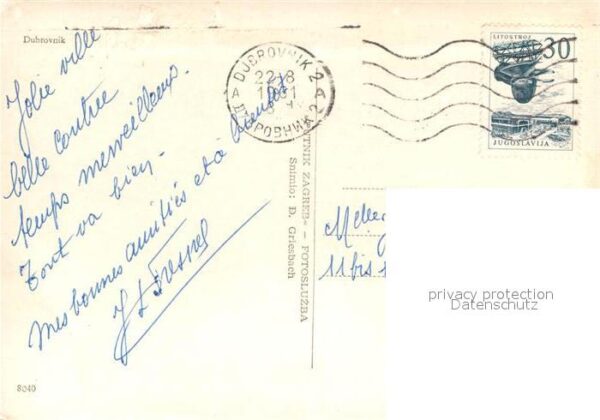 Dubrovnik
Jolie ville
belle contrée
temps merveilleux.
Tout va bien.
Mes bonnes amitiés et à bientôt
DUBROVNIK 2
22-8
1961
A
ДУБРОВНИК 2
LITOSTROJ
30
JUGOSLAVIJA
TNIK ZAGREB« – FOTOSLUŽBA
Snimio: D. Griesbach
11 bis
privacy protection
Datenschutz
8040